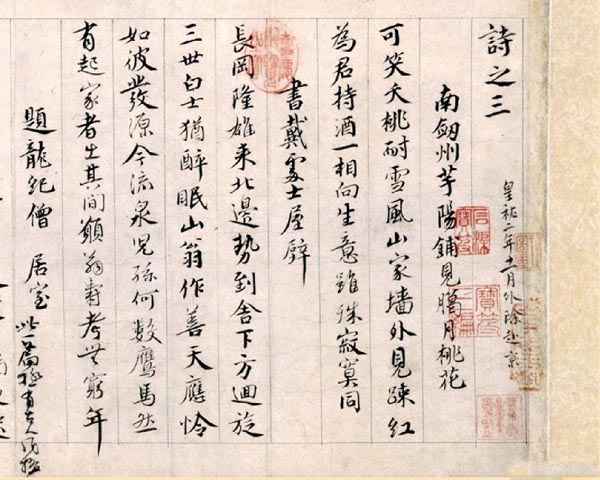 詩之三
皇祐二年十一月外除赴京
南劔州芋陽鋪見臘月桃花
可笑夭桃耐雪風山家墻外見踈紅
為君持酒一相向生意雖殊寂寞同
書戴處士屋壁
長岡隆雄来北邊勢到舍下方迴旋
三世白士猶醉眠山翁作善天應憐
如彼發源今流泉児孫何數鷹馬然
有起家者出其間願翁壽考無窮年
題龍紀僧居室
此篇極有古人風格